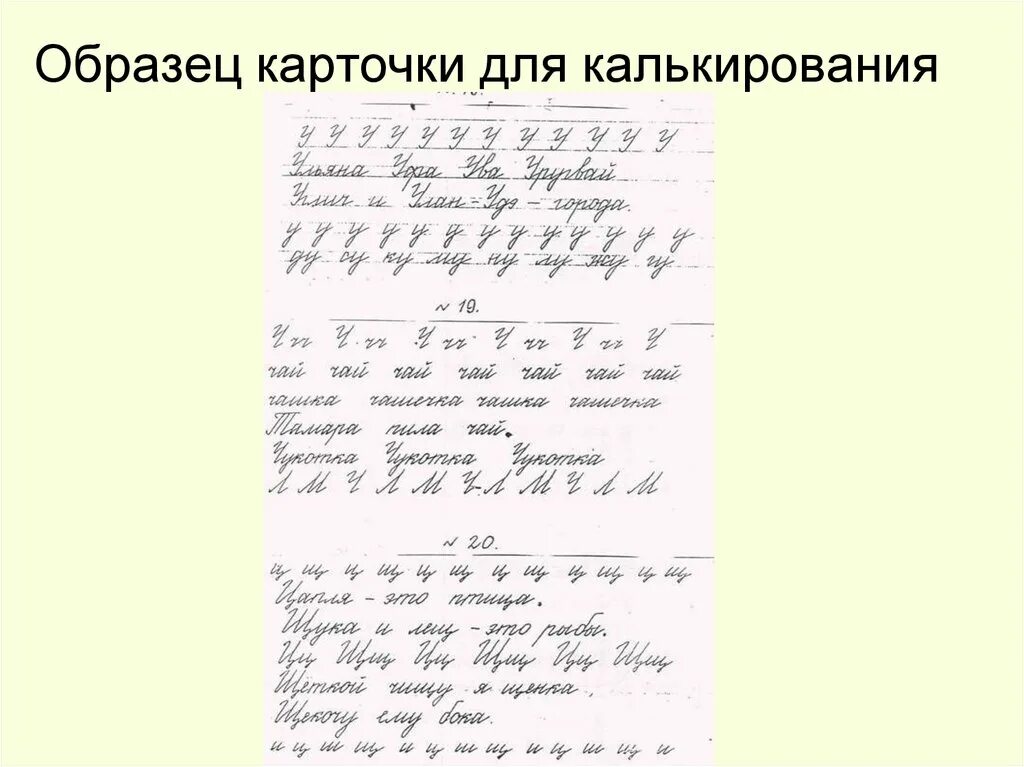 Образец карточки для калькирования
У У У У У У У У У У У У У
Ульяна Уфа Ува Уругвай
Углич и Улан-Удэ - города.
у у у у у у у у у у у у у
ду су ку му ну лу жу гу
№ 19.
Ч чч Ч чч Ч чч Ч чч Ч чч Ч
чай чай чай чай чай чай чай
чашка чашечка чашка чашечка
Тамара пила чай.
Чукотка Чукотка Чукотка
Л М Ч Л М Ч Л М Ч Л М
№ 20.
ц щ ц щ ц щ ц щ ц щ ц щ
Цапля - это птица.
Щука и лещ - это рыбы.
Цц Щщ Цц Щщ Цц Щщ
Щёткой чищу я щенка.
Щекочу ему бока.
и ц ш щ и ц ш щ и ц ш щ и